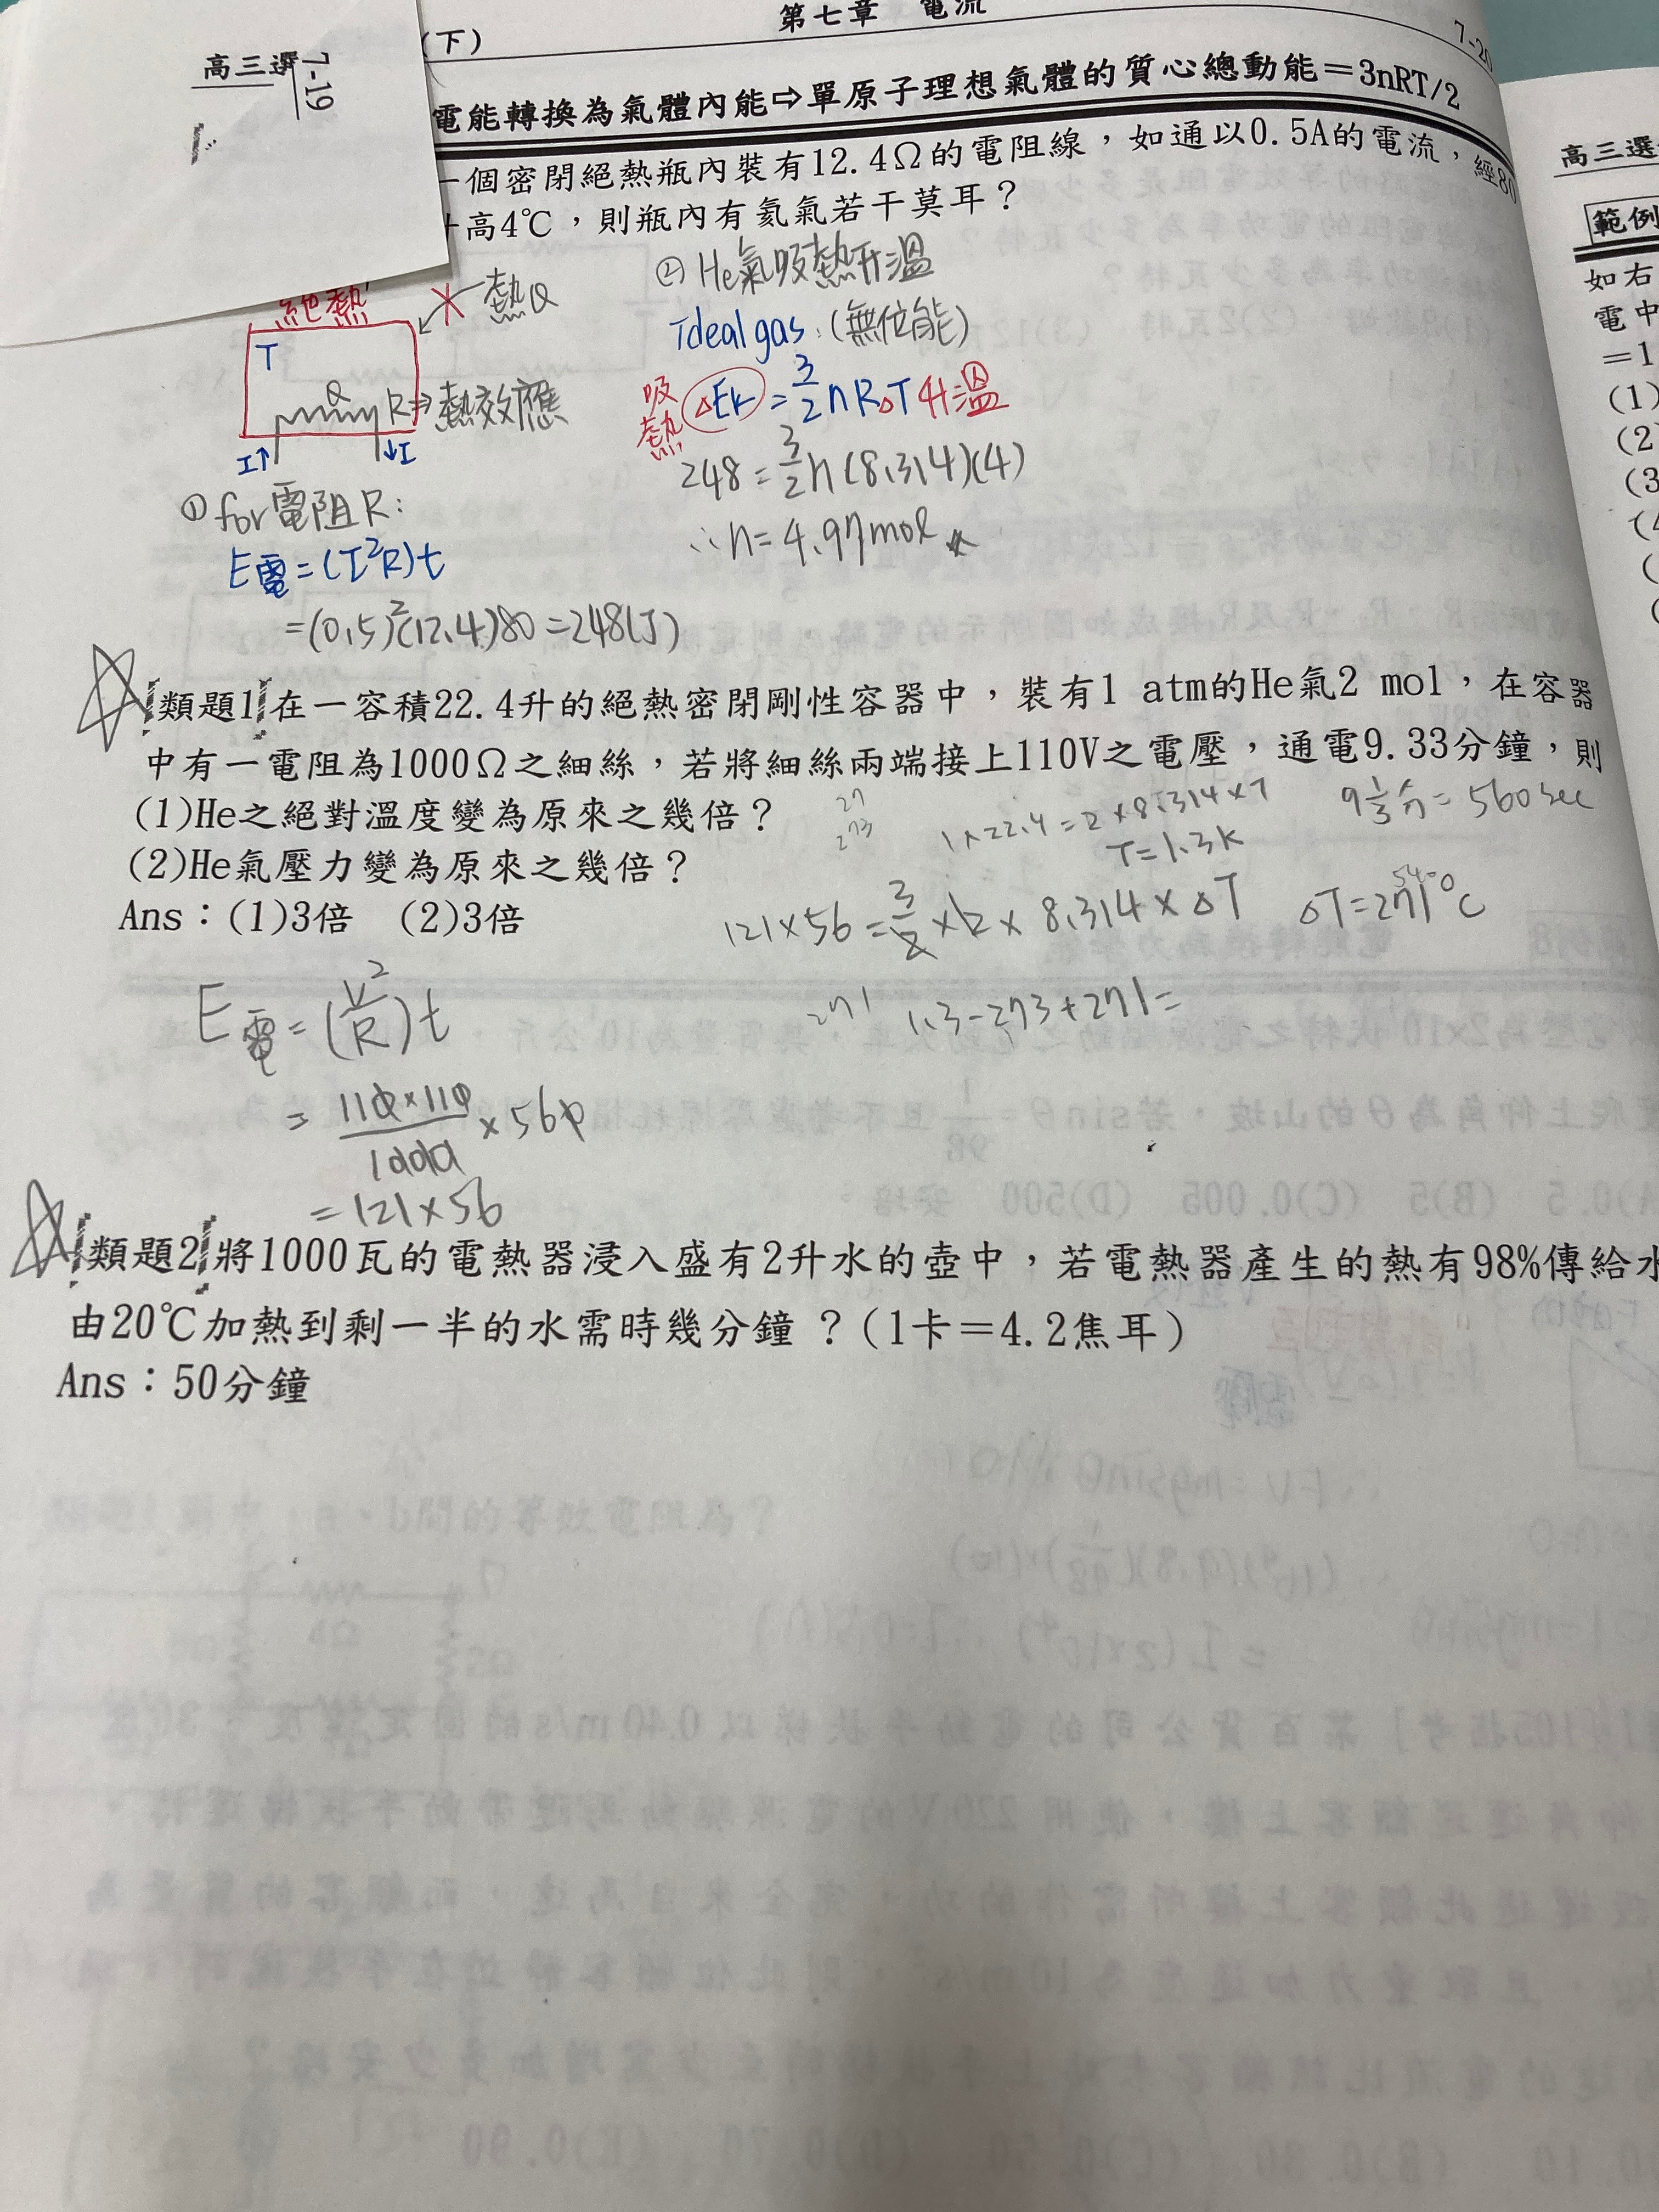 第七章 電流
(下)
7-20
高三選
7-19
電能轉換為氣體內能⇨單原子理想氣體的質心總動能=3nRT/2
一個密閉絕熱瓶內裝有12.4Ω的電阻線，如通以0.5A的電流，經80
高4℃，則瓶內有氦氣若干莫耳？
絕熱
熱Q
T
Q
R⇒熱效應
I↑
↓I
① for電阻R:
E電=(I²R)t
=(0.5)²(12.4)80=248(J)
② He氣吸熱升溫
Ideal gas (無位能)
吸熱 ΔEk=3/2nRΔT 升溫
248=3/2n(8.314)(4)
∴n=4.97mol
類題1 在一容積22.4升的絕熱密閉剛性容器中，裝有1 atm的He氣2 mol，在容器
中有一電阻為1000Ω之細絲，若將細絲兩端接上110V之電壓，通電9.33分鐘，則
(1)He之絕對溫度變為原來之幾倍？
(2)He氣壓力變為原來之幾倍？
Ans：(1)3倍 (2)3倍
27
273
1×22.4=2×8.314×T
T=1.3K
9⅓分=560sec
121×56=3/2×2×8.314×ΔT
ΔT=271℃
540
271
1.3-273+271=
E電=(V²/R)t
=110×110/1000×560
=121×56
類題2 將1000瓦的電熱器浸入盛有2升水的壺中，若電熱器產生的熱有98%傳給水
由20℃加熱到剩一半的水需時幾分鐘？(1卡=4.2焦耳)
Ans：50分鐘
高三選
範例
如右
電中
=1
(1)
(2)
(3
(4
(